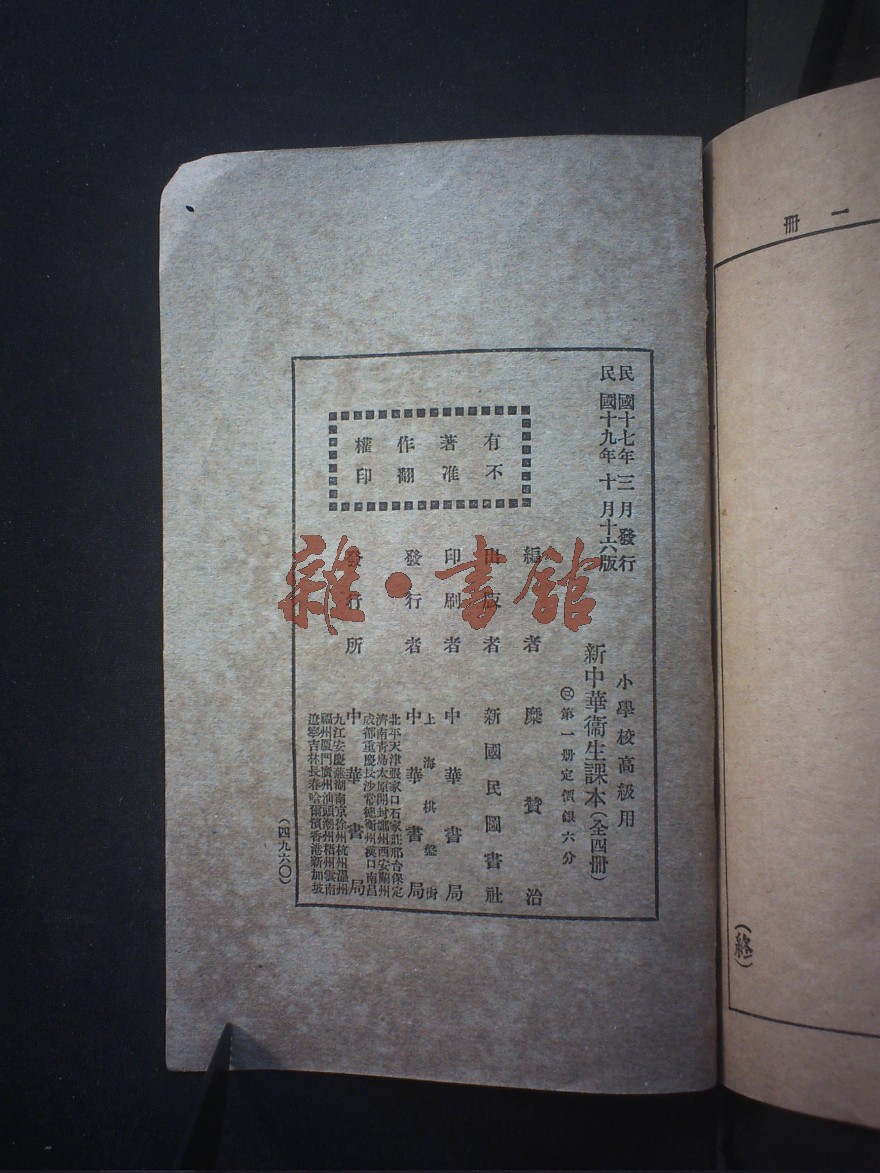 一冊
(終)
民國十七年三月發行
民國十九年十月十六版
小學校高級用
新中華衞生課本(全四冊)
第一册定價銀六分
有著作權
不准翻印
編者 糜贊治
出版者 新國民圖書社
印刷者 中華書局
上海棋盤街
發行者 中華書局
北平天津張家口石家莊邢台保定
濟南青島太原開封鄭州西安蘭州
成都重慶長沙常德衡州漢口南昌
發行所 中華書局
九江安慶蕪湖南京徐州杭州溫州
福州廈門廣州汕頭潮州梧州雲南
遼寧吉林長春哈爾濱香港新加坡
(四九六〇)
雜·書館